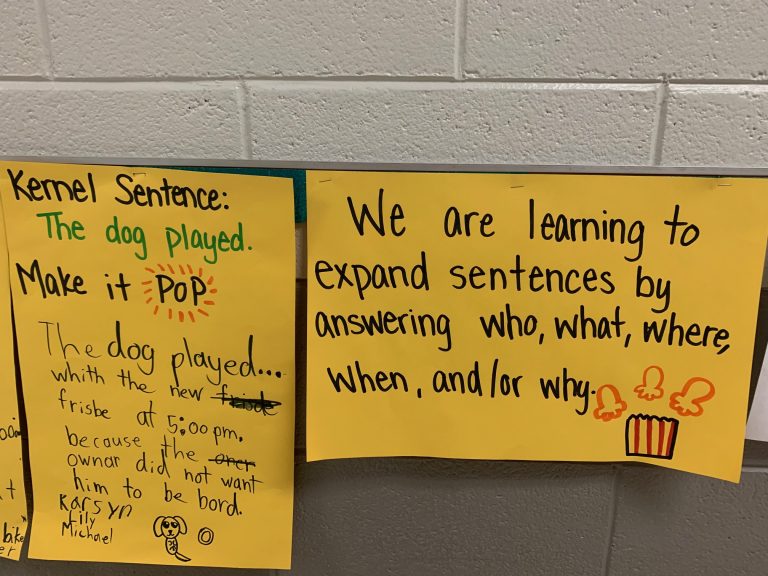 Kernel Sentence:
The dog played.
Make it POP
The dog played...
whith the new
frisbe at 5:00 pm.
because the
ownar did not want
him to be bord.
Karsyn
Lily
Michael
We are learning to
expand sentences by
answering who, what, where,
when, and/or why.
bike